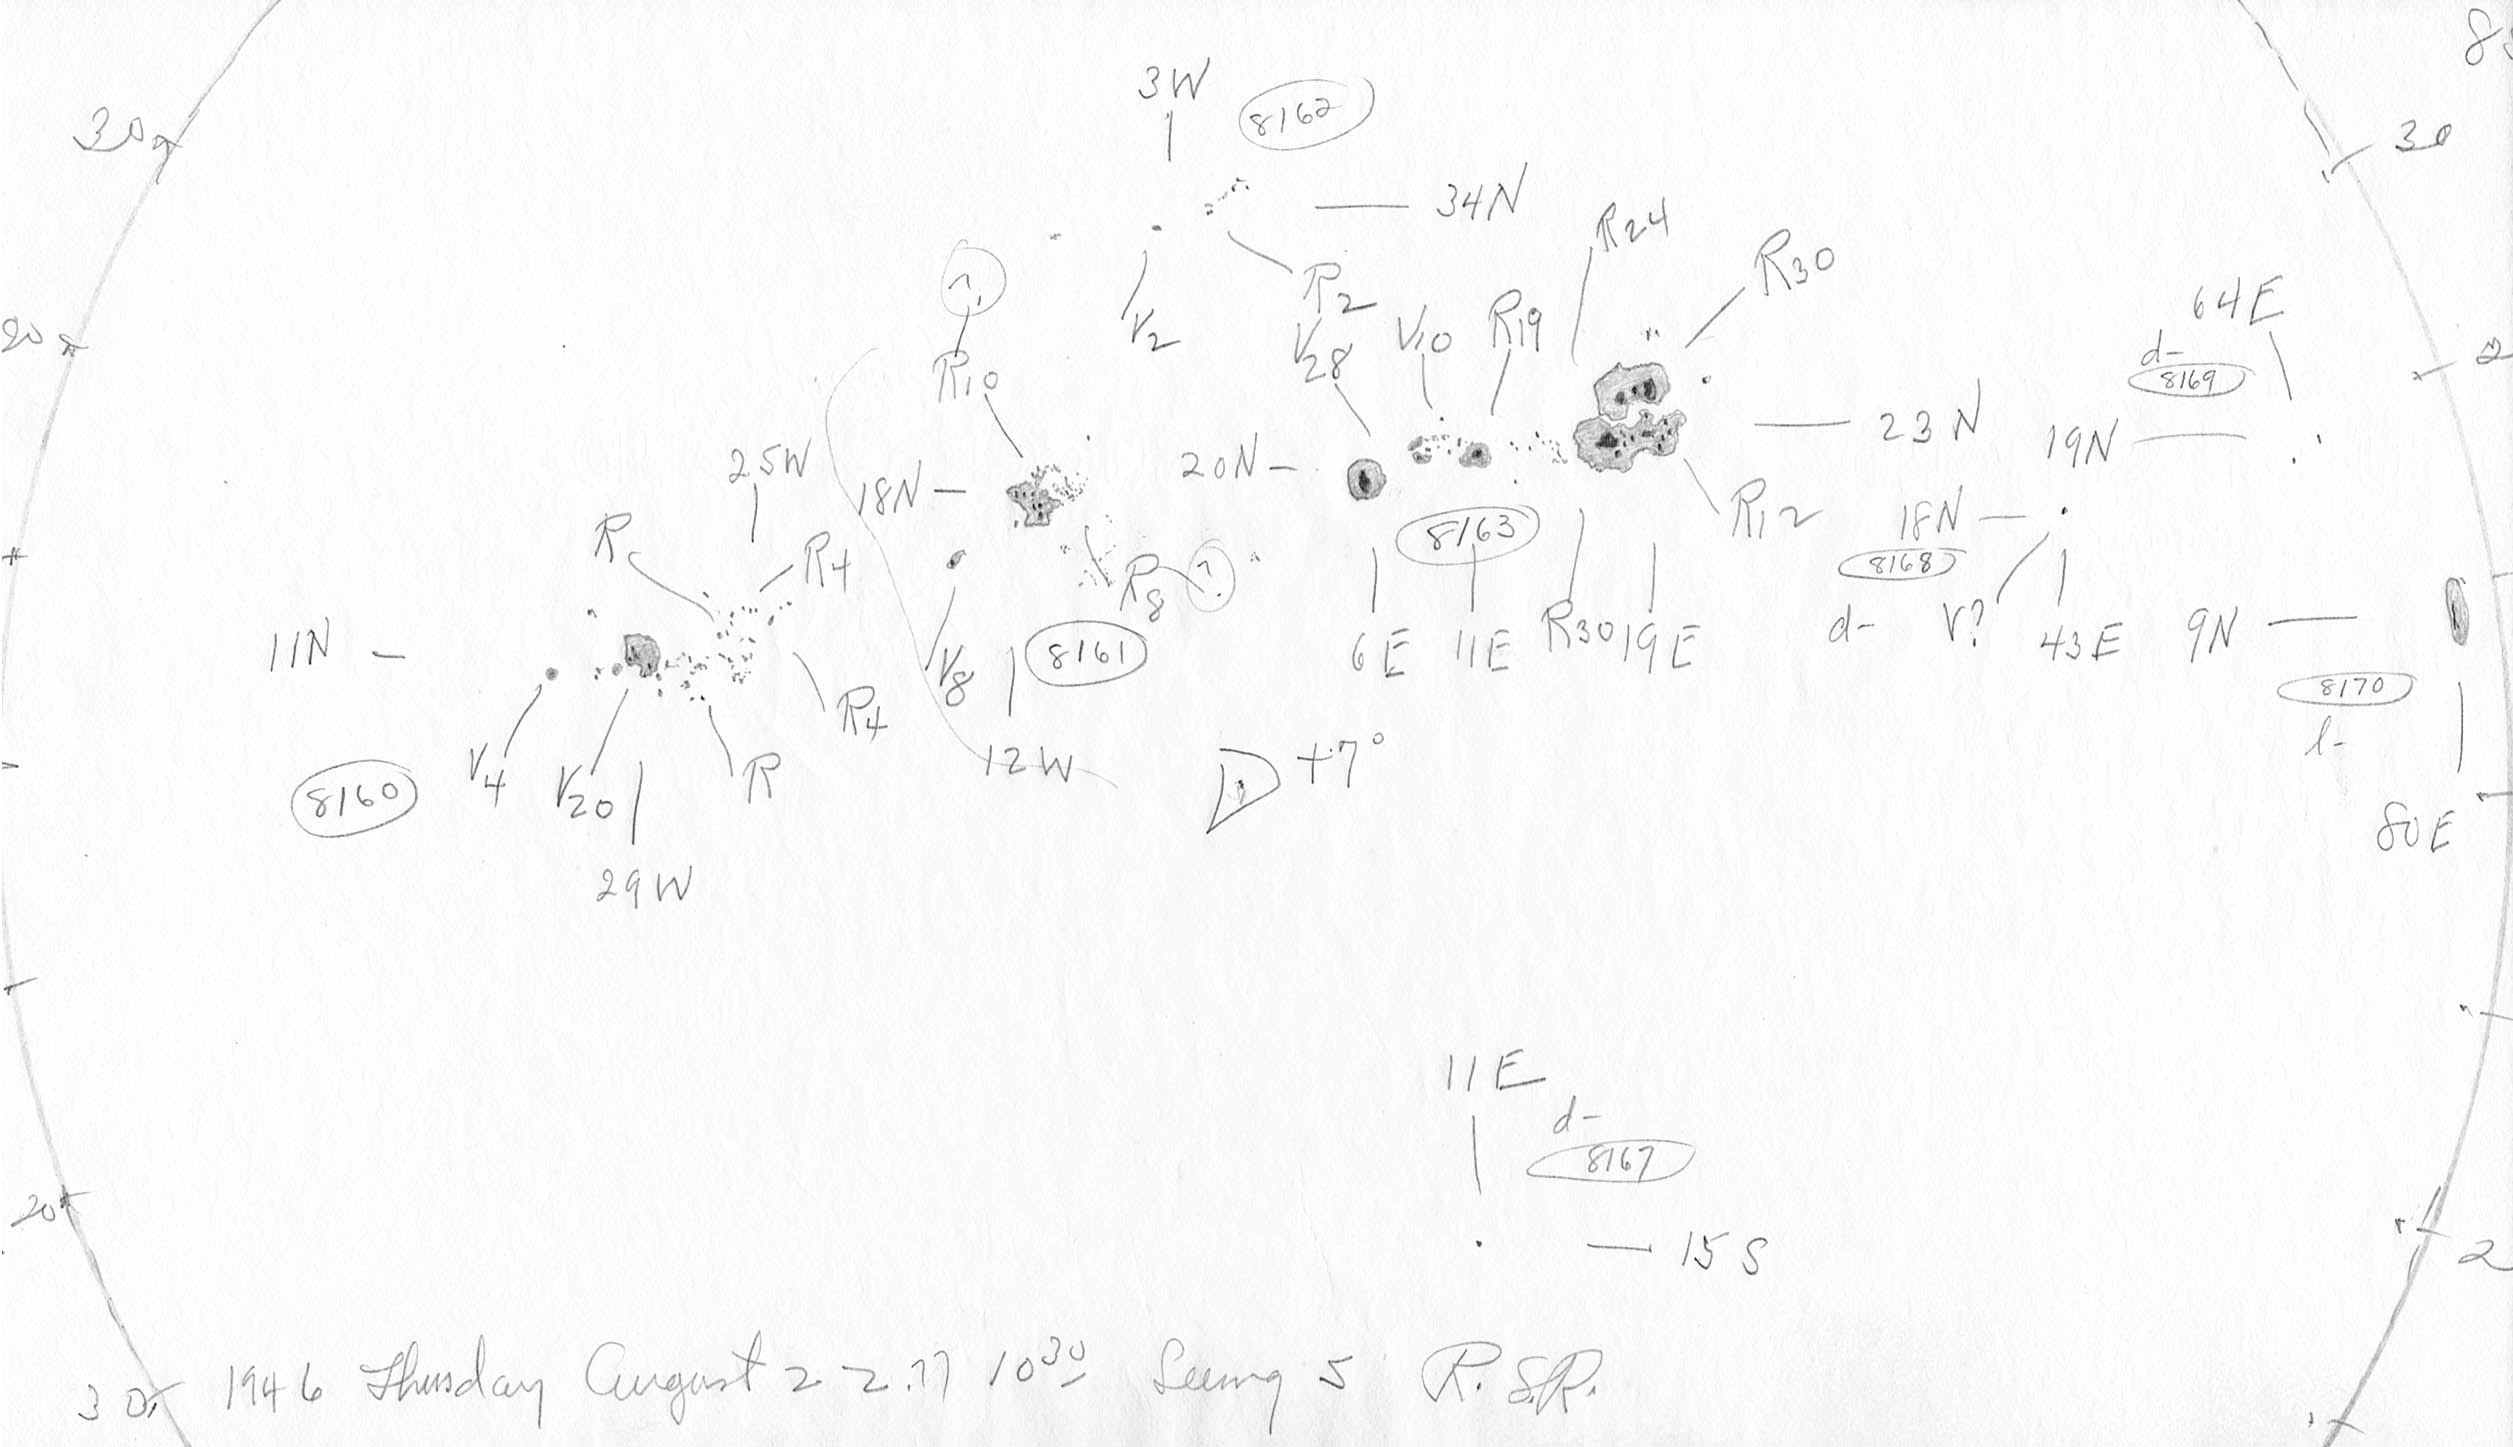 3W
8162
30
30
34N
R24
R30
?
R2
V2
V28
V10
R19
64E
20
R10
d-
8169
23N
19N
25W
18N
20N
R12
18N
8163
8168
R
R4
R8
?
11N
V8
8161
6E
11E
R30
19E
d-
V?
43E
9N
8170
R4
l-
V4
V20
R
12W
D +7°
8160
80E
29W
11E
d-
8167
20
15S
30
1946 Thursday August 22.77 10³⁰ Seeing 5 R.S.R.